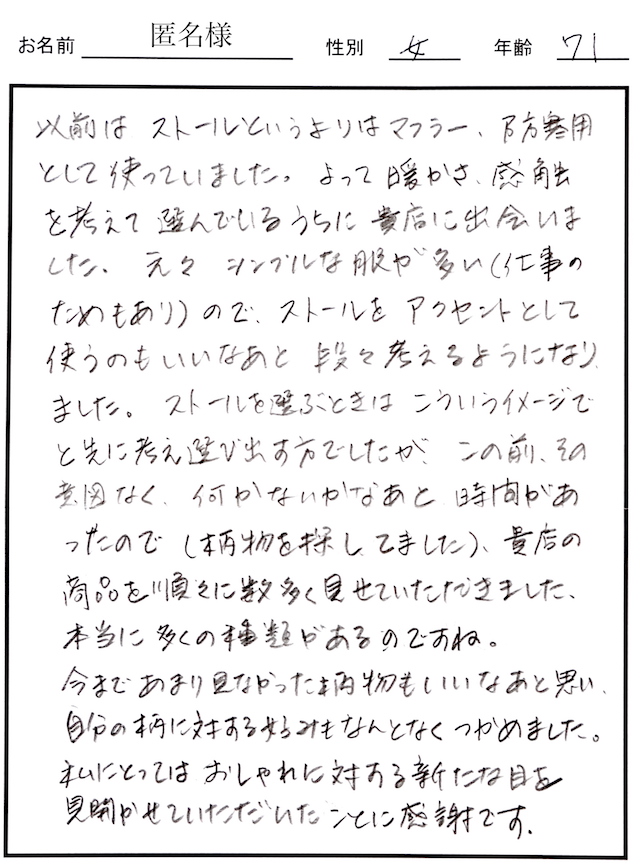 お名前 匿名様 性別 女 年齢 71
以前は ストールというよりはマフラー、防寒用
として使っていました。よって暖かさ、感触
を考えて選んでいるうちに貴店に出会いま
した。元々 シンプルな服が多い(仕事の
ためもあり)ので、ストールを アクセントとして
使うのもいいなあと 段々考えるようになり
ました。ストールを選ぶときは こういうイメージで
と先に考え選び出す方でしたが、この前、その
意図なく、何かないかなあと 時間があ
ったので(柄物を探してました)、貴店の
商品を順々に数多く見せていただきました、
本当に多くの種類があるのですね。
今まであまり見なかった柄物もいいなあと思い、
自分の柄に対する好みもなんとなくつかめました。
私にとっては おしゃれに対する新たな目を
見開かせていただいたことに感謝です.